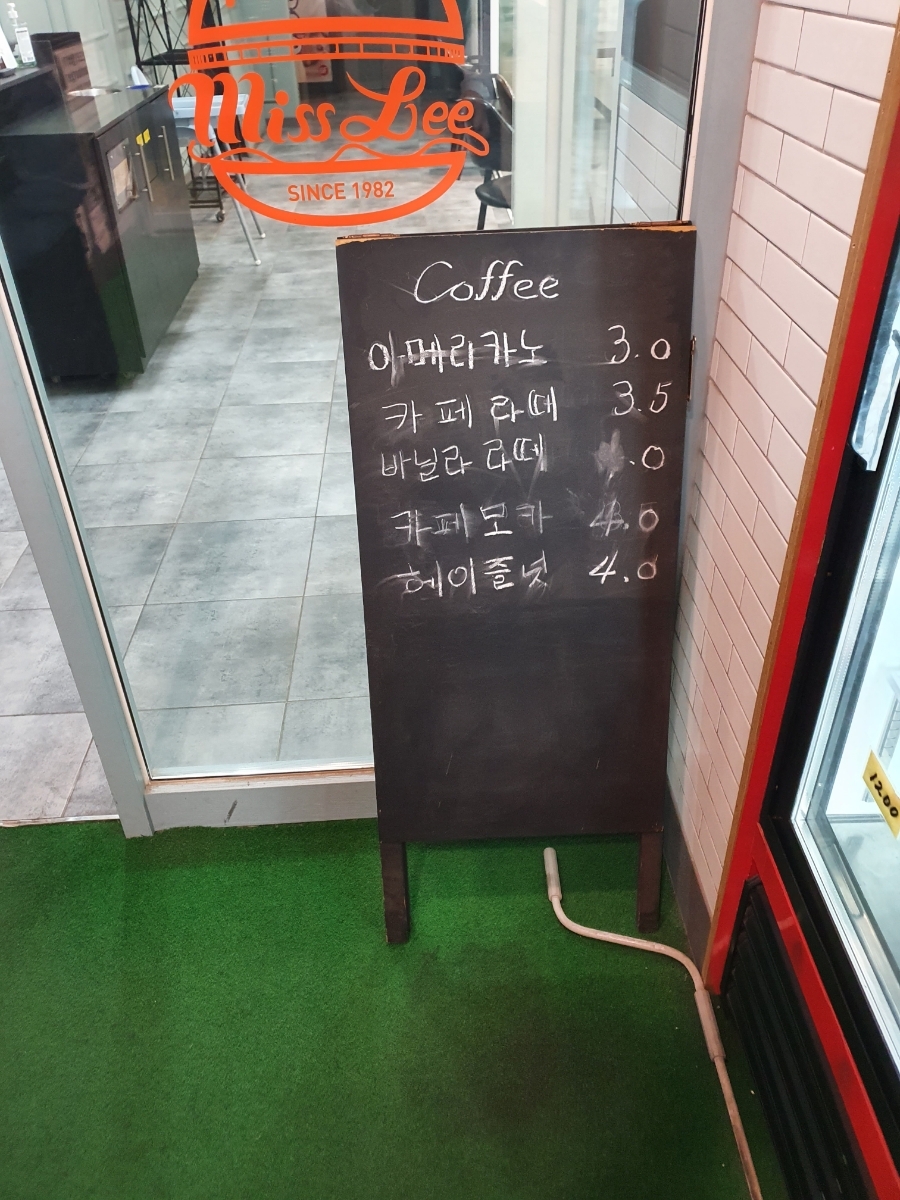 Miss Lee
SINCE 1982
Coffee
아메리카노 3.0
카페 라떼 3.5
바닐라 라떼 .0
카페모카
헤이즐넛 4.0
1200